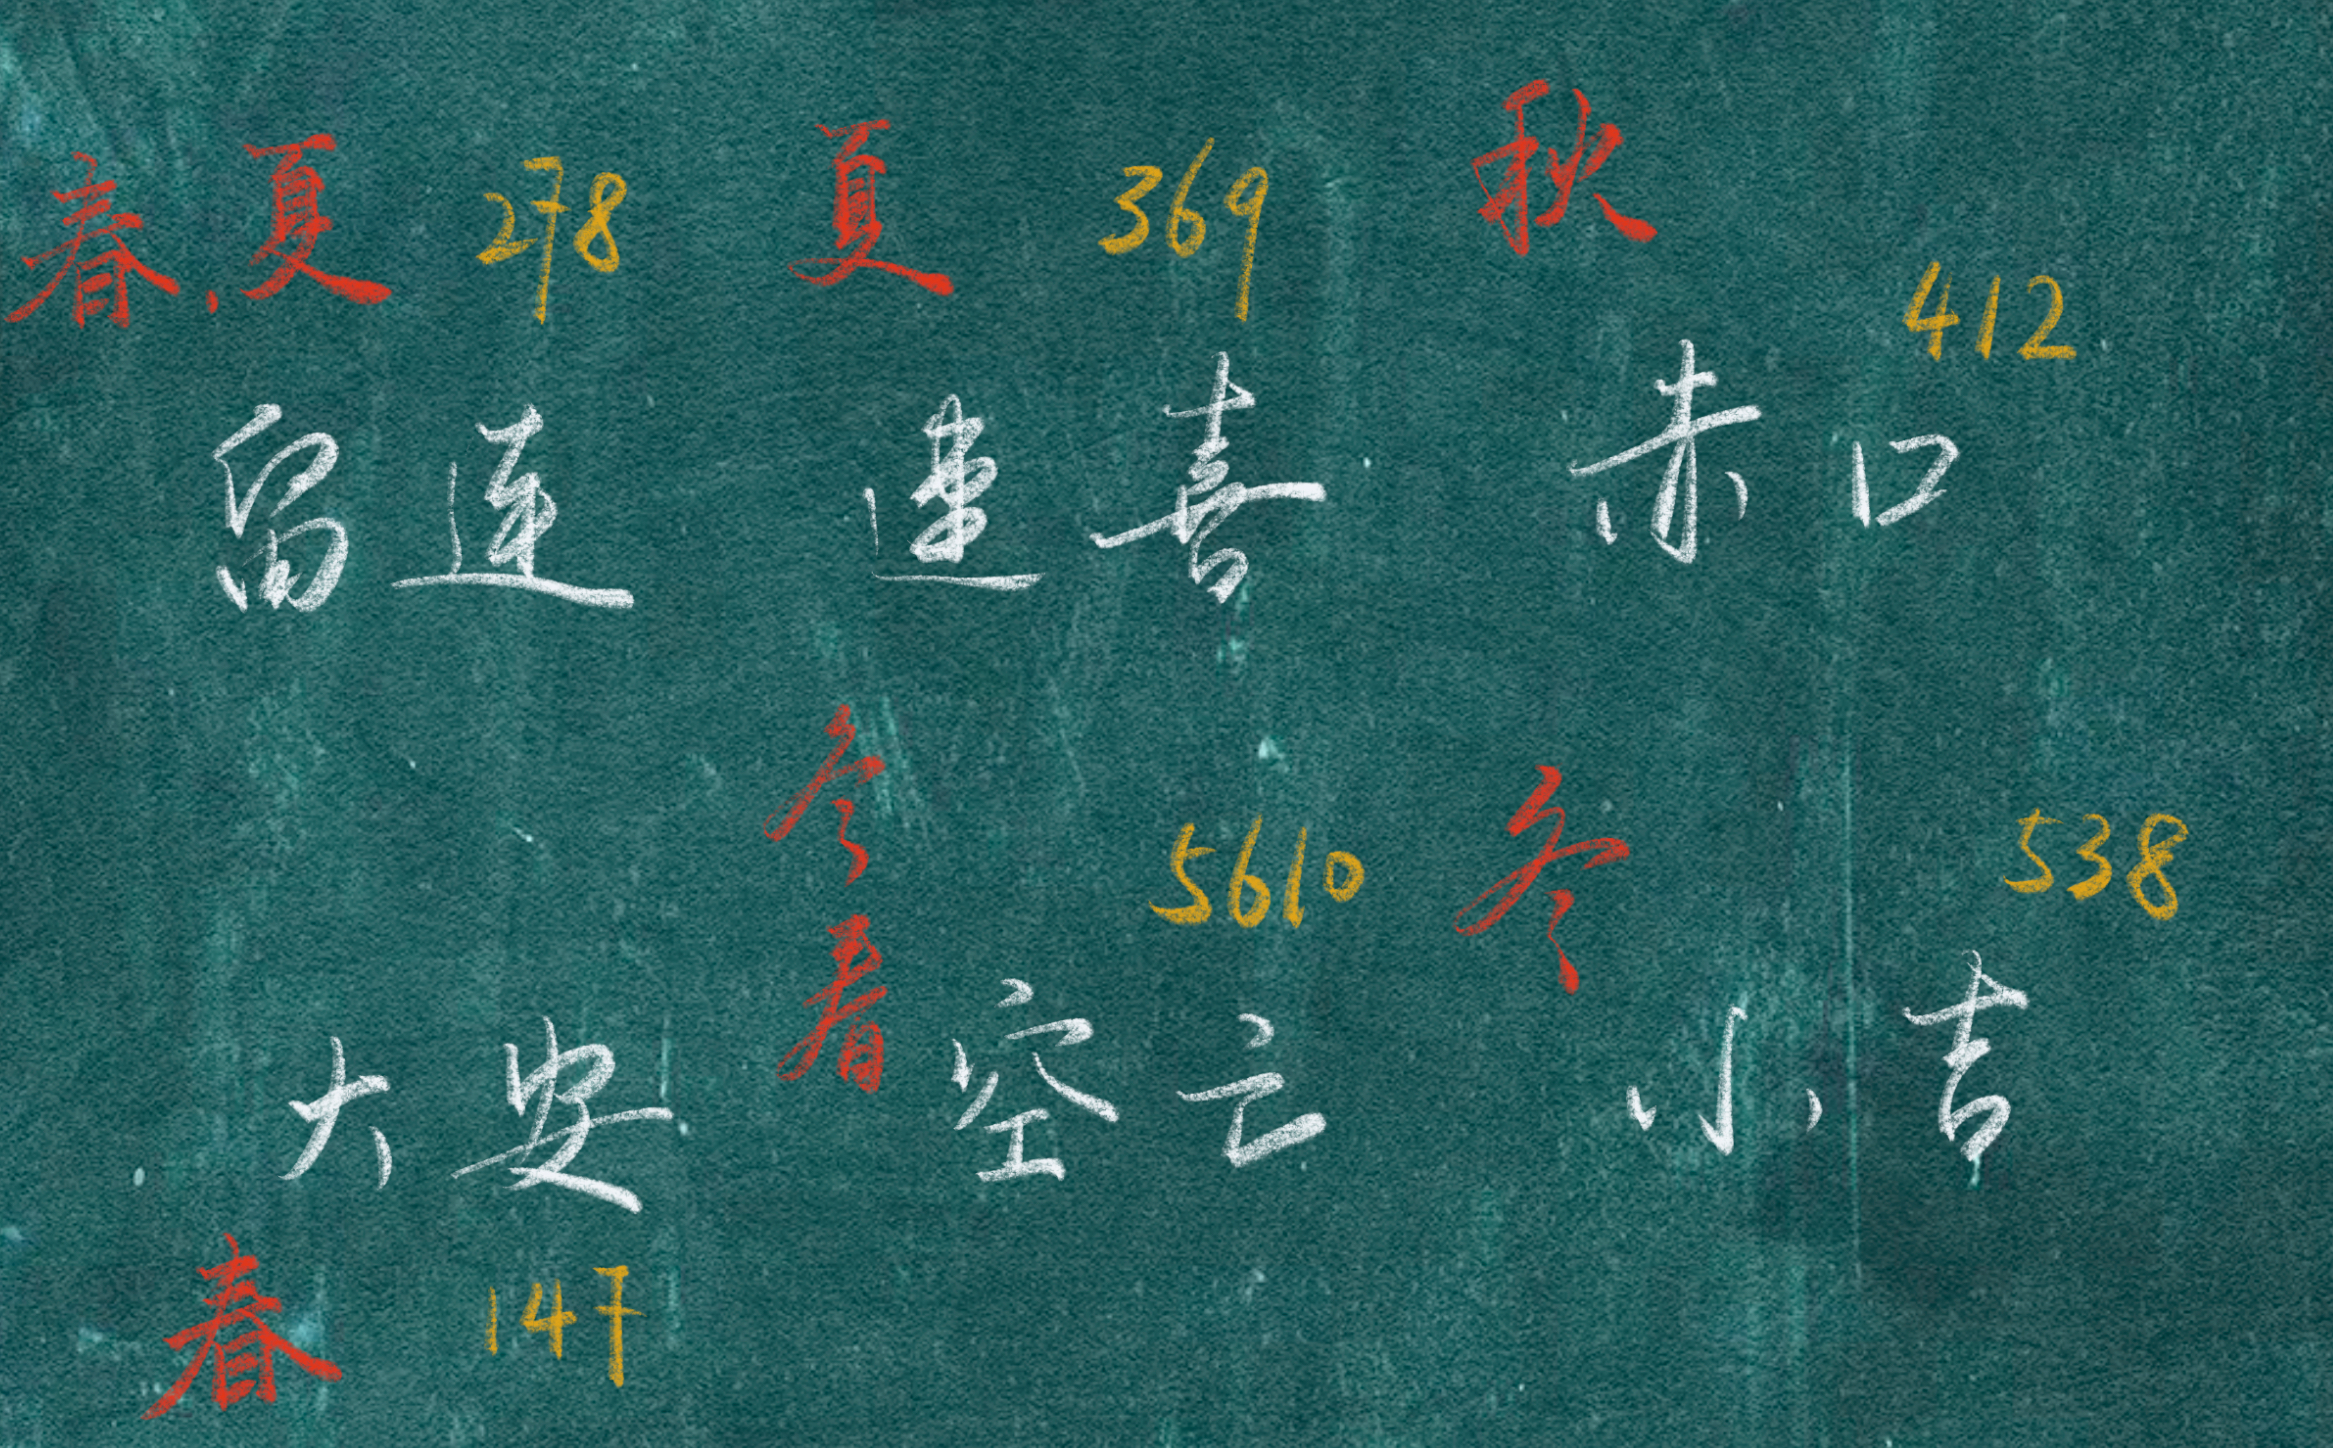 春、夏 278 夏 369 秋 412
留连 速喜 赤口
冬 5610 冬 538
春
大安 空亡 小吉
春 147